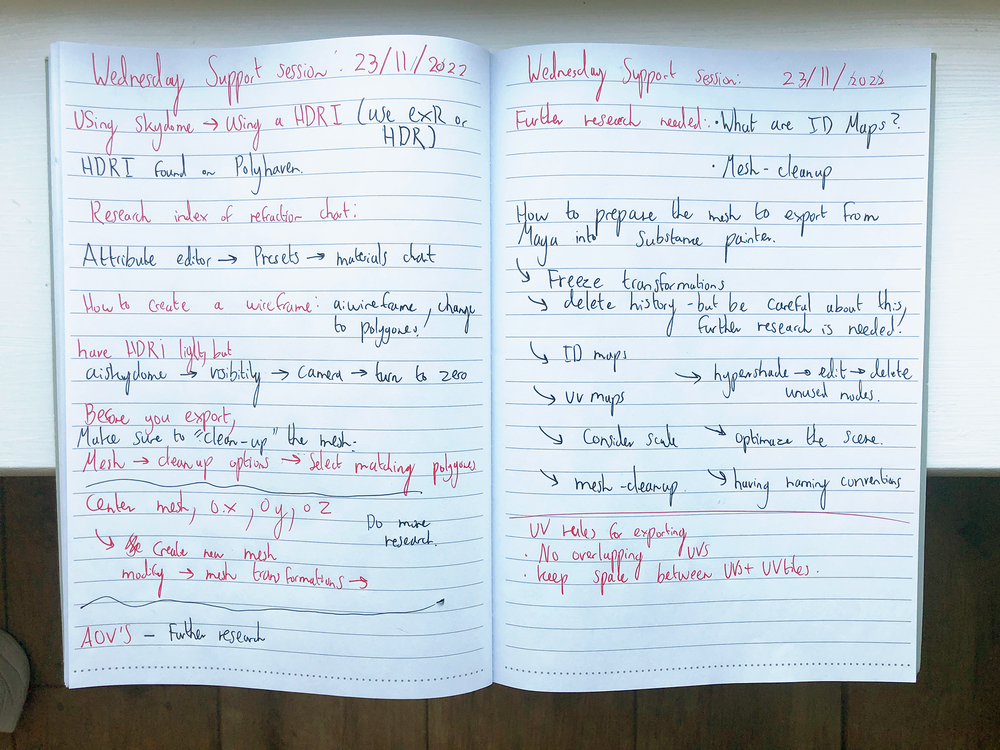 Wednesday Support session: 23/11/2022
Using Skydome → Using a HDRI (use exR or
HDR)
HDRI found on Polyhaven.
Research index of refraction chart:
Attribute editor → Presets → materials chat
How to create a wireframe: aiwireframe, change
to polygones!
have HDRi light, but
aiskydome → visibitily → Camera → turn to zero
Before you export,
Make sure to "clean-up" the mesh:
Mesh → cleanup options → Select matching polygones
Center mesh, 0x, 0y, 0z
Do more
research.
↳ Create new mesh
modify → mesh transformations →
AOV'S – Further research
Wednesday Support Session: 23/11/2022
Further research needed: • What are ID Maps?
• Mesh - cleanup
How to prepare the mesh to export from
Maya into Substance painter.
↳ Freeze transformations
↳ delete history - but be careful about this,
further research is needed!
↳ ID maps
→ hypershade → edit → delete
unused nodes.
↳ UV maps
↳ Consider scale ↳ optimize the scene.
↳ mesh-cleanup ↳ having naming conventions
UV rules for exporting
• No overlapping UVs
• keep space between UVs + UVtiles.